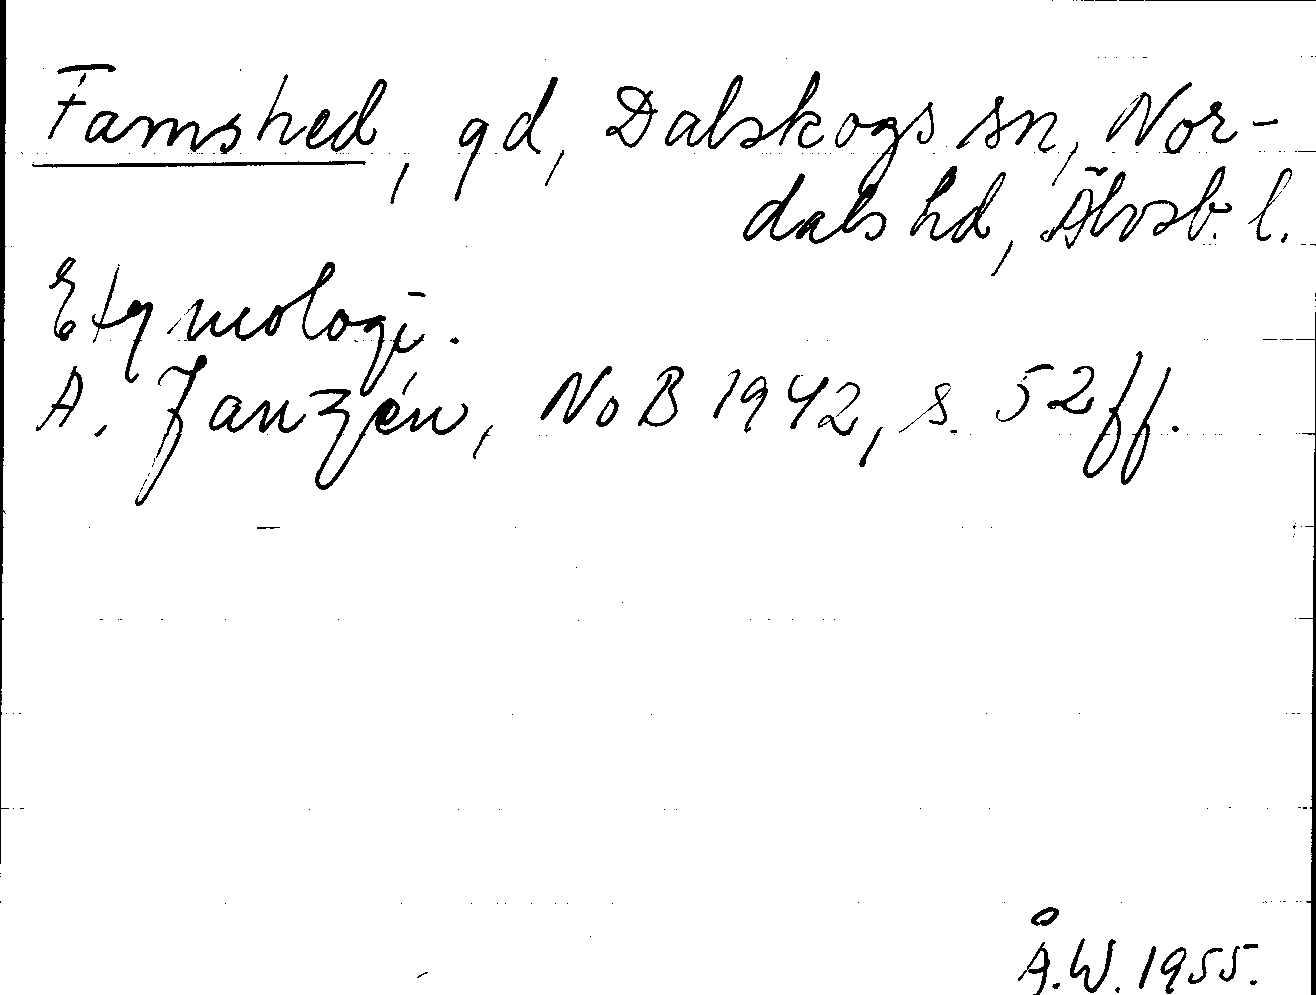 Famshed, gd, Dalskogs sn, Nor-
dals hd, Älvsb. l.
Etymologi.
A. Janzén, NoB 1942, s. 52ff.
Å.W. 1955.